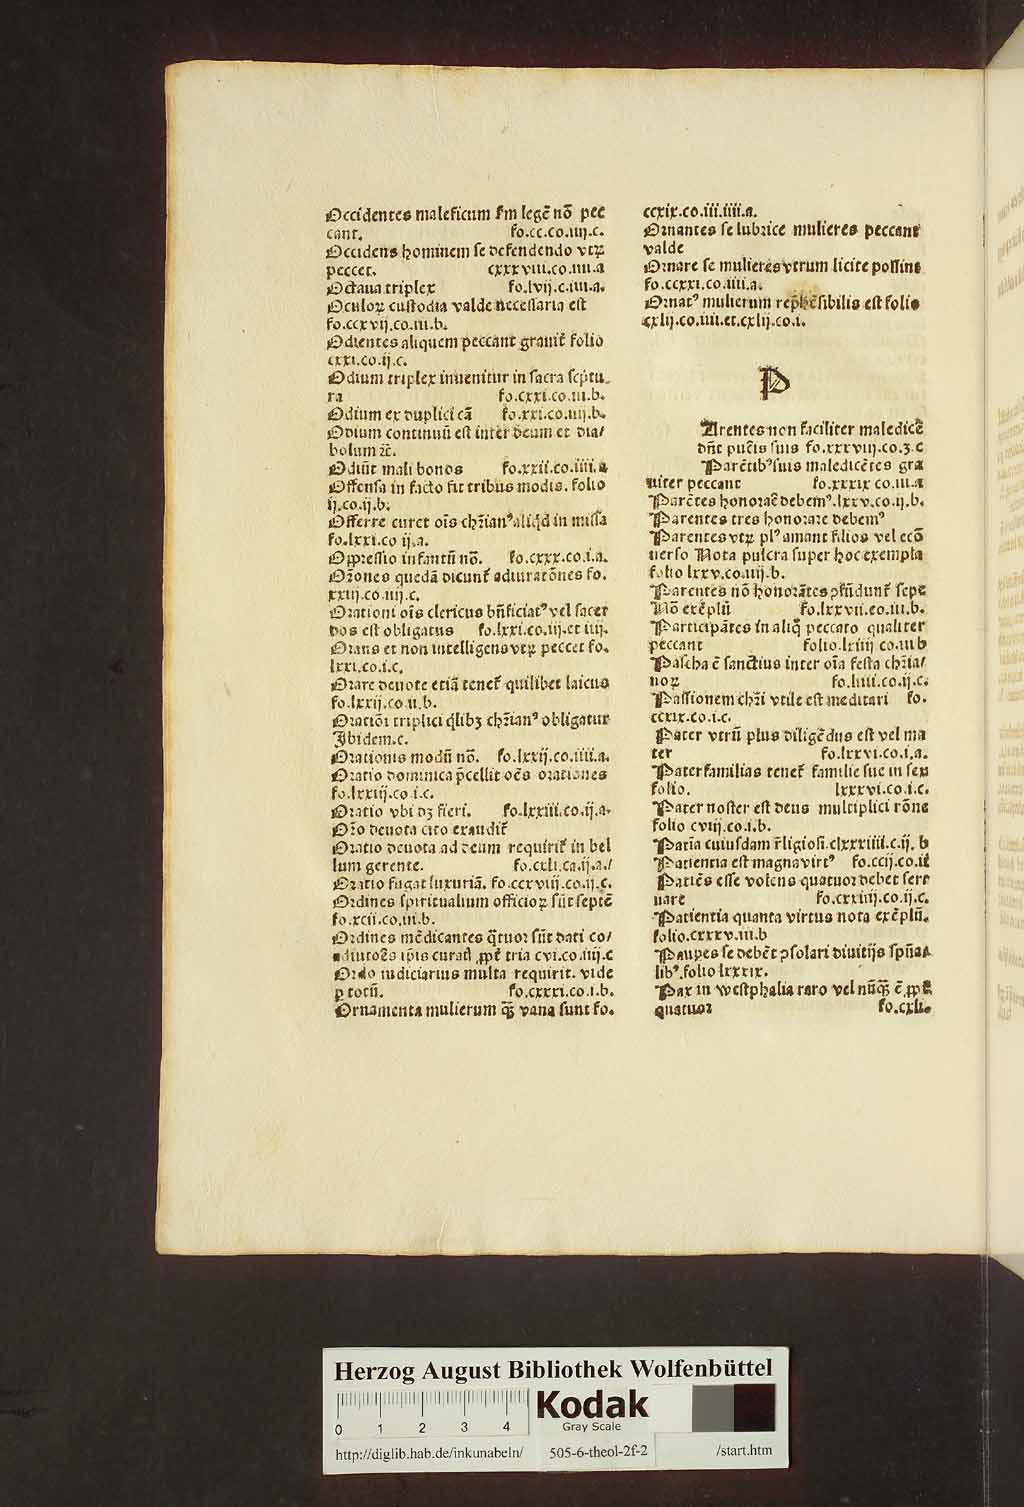 Occidentes maleficum s̃m legẽ nõ pec
cant. fo.cc.co.iiij.c.
Occidens hominem se defendendo vtꝝ
peccet. cxxxviii.co.iiii.a
Octaua triplex fo.lvij.c.iiii.a.
Oculoꝝ custodia valde necessaria est
fo.ccxvij.co.iii.b.
Odientes aliquem peccant grauit̃ folio
cxxi.co.ij.c.
Odium triplex inuenitur in sacra scp̃tu
ra fo.cxxi.co.iii.b.
Odium ex duplici cã fo.xxi.co.iiij.b.
Odium continuũ est inter deum et dia/
bolum ꝛc̃.
Odiũt mali bonos fo.xxii.co.iiii.a
Offensa in facto fit tribus modis. folio
ij.co.ij.b.
Offerre curet oĩs chr̃ianꝰ aliq̃d in missa
fo.lxxi.co ij.a.
Oppressio infantũ nõ. fo.cxxx.co.i.a.
Or̃ones quedã dicunt̃ adiuratões fo.
xxiij.co.iij.c.
Orationi oĩs clericus bñficiatꝰ vel sacer
dos est obligatus fo.lxxi.co.iij.et iiij.
Orans et non intelligens vtꝝ peccet fo.
lxxi.co.i.c.
Orare deuote etiã tenet̃ quilibet laicus
fo.lxxij.co.ii.b.
Oratiõi triplici q̃libꝫ chr̃ianꝰ obligatur
Ibidem.c.
Orationis modũ nõ. fo.lxxij.co.iiii.a.
Oratio dominica p̃cellit oẽs orationes
fo.lxxiij.co i.c.
Oratio vbi dꝫ fieri. fo.lxxiii.co.ij.a.
Or̃o deuota cito exaudit̃
Oratio deuota ad deum requirit̃ in bel
lum gerente. fo.cxli.ca.ij.a./
Oratio fugat luxuriã. fo.ccxviij.co.ij.c.
Ordines spiritualium officioꝝ sũt septẽ
fo.xcii.co.iii.b.
Ordines mẽdicantes q̃tuor sũt dati co/
adiutoẽs ip̃is curatꝭ ꝓpt̃ tria cvi.co.iiij.c
Ordo iudiciarius multa requirit. vide
ꝑ totũ. fo.cxxxi.co.i.b.
Ornamenta mulierum qꝫ̃ vana sunt fo.
ccxix.co.iii.iiii.a.
Ornantes se lubrice mulieres peccant
valde
Ornare se mulieres vtrum licite possint
fo.ccxxi.co.iiii.a.
Ornatꝰ mulierum rep̃hẽsibilis est folio
cxlij.co.iiii.et.cxlij.co.i.
P
Arentes non faciliter maledicẽ
dñt puer̃is suis fo.xxxviij.co.3.c
Parẽtibꝰ suis maledicẽtes gra
uiter peccant fo.xxxix co.iii.a
Parẽtes honorar̃e debemꝰ.lxxv.co.ij.b.
Parentes tres honorare debemꝰ
Parentes vtꝝ plꝰ amant filios vel ecõ
uerso Nota pulcra super hoc exempla
folio lxxv.co.iiij.b.
Parentes nõ honorãtes ꝯfũdunt̃ sepe
Nõ exẽplũ fo.lxxvii.eo.iii.b.
Participãtes in aliq̃ peccato qualiter
peccant folio.lxiiij co.iii b
Pascha ẽ sanctius inter oĩa festa chr̃ia/
noꝝ fo.liiii.co.ij.c.
Passionem chr̃i vtile est meditari fo.
ccxix.co.i.c.
Pater vtrũ plus diligẽdus est vel ma
ter fo.lxxvi.co.i.a.
Paterfamilias tenet̃ familie sue in sex
folio. lxxxvi.co.i.c.
Pater noster est deus multiplici rõne
folio cviij.co.i.b.
Patĩa cuiusdam r̃ligiosi.clxxxiiii.c.ij. b
Patientia est magna virtꝰ fo.ccij.co.ii
Patiẽs esse volens quatuor debet seru
uare fo.cxxiiij.co.ij.c.
Patientia quanta virtus nota exẽplũ.
folio.cxxxv.iii.b
Paupes se debẽt ꝯsolari diuitijs spũa
libꝰ.folio lxxxix.
Pax in westphalia raro vel nũqꝫ̃ ẽ ꝓpt̃
quatuor fo.cxli.
Herzog August Bibliothek Wolfenbüttel
0 1 2 3 4
Kodak
Gray Scale
http://diglib.hab.de/inkunabeln/ 505-6-theol-2f-2 /start.htm